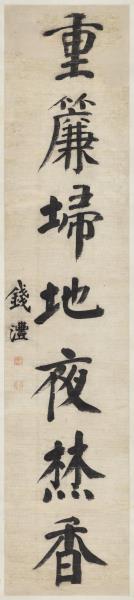 重簾埽地夜焚香
錢灃